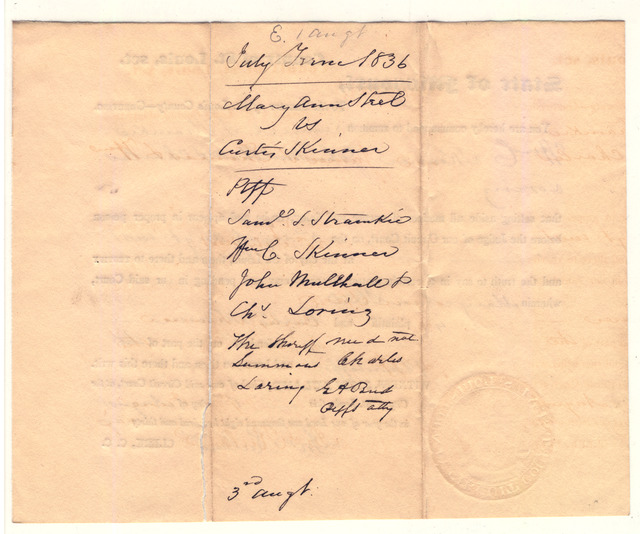 E. 1 augt.
July Term 1836
Mary Ann Steel
vs
Curtis Skinner
Plff
Saml. S.
Wm C. Skinner
John Mulhall &
Chs. Loring
The Sheriff need not
Summons Charles
Loring
Plffs atty
3rd augt.